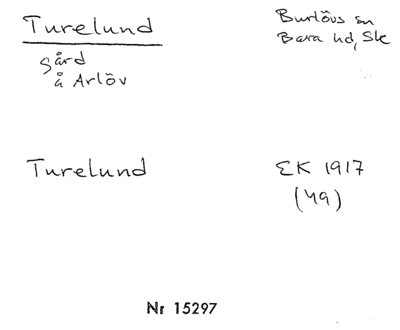 Turelund
Burlövs sn
Bara hd, Sk
gård
å Arlöv
Turelund
EK 1917
(49)
Nr 15297